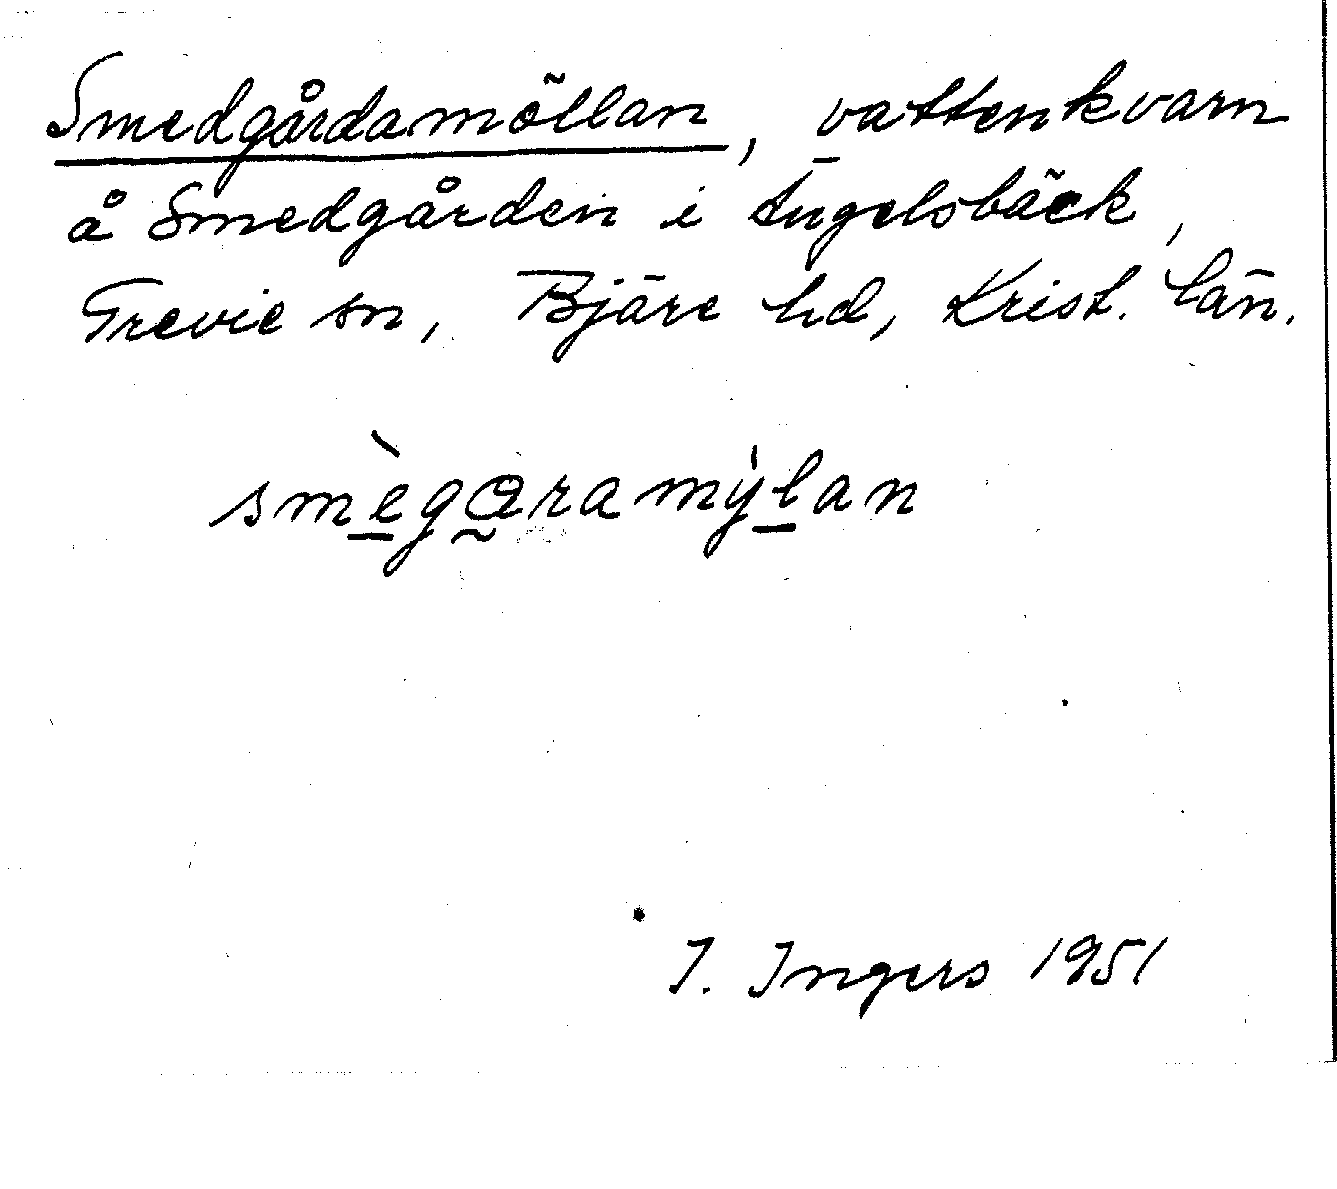 Smedgårdamöllan, vattenkvarn
å Smedgården i Ängelsbäck,
Grevie sn, Bjäre hd, Krist. län.
smègaramýlan
I. Ingers 1951